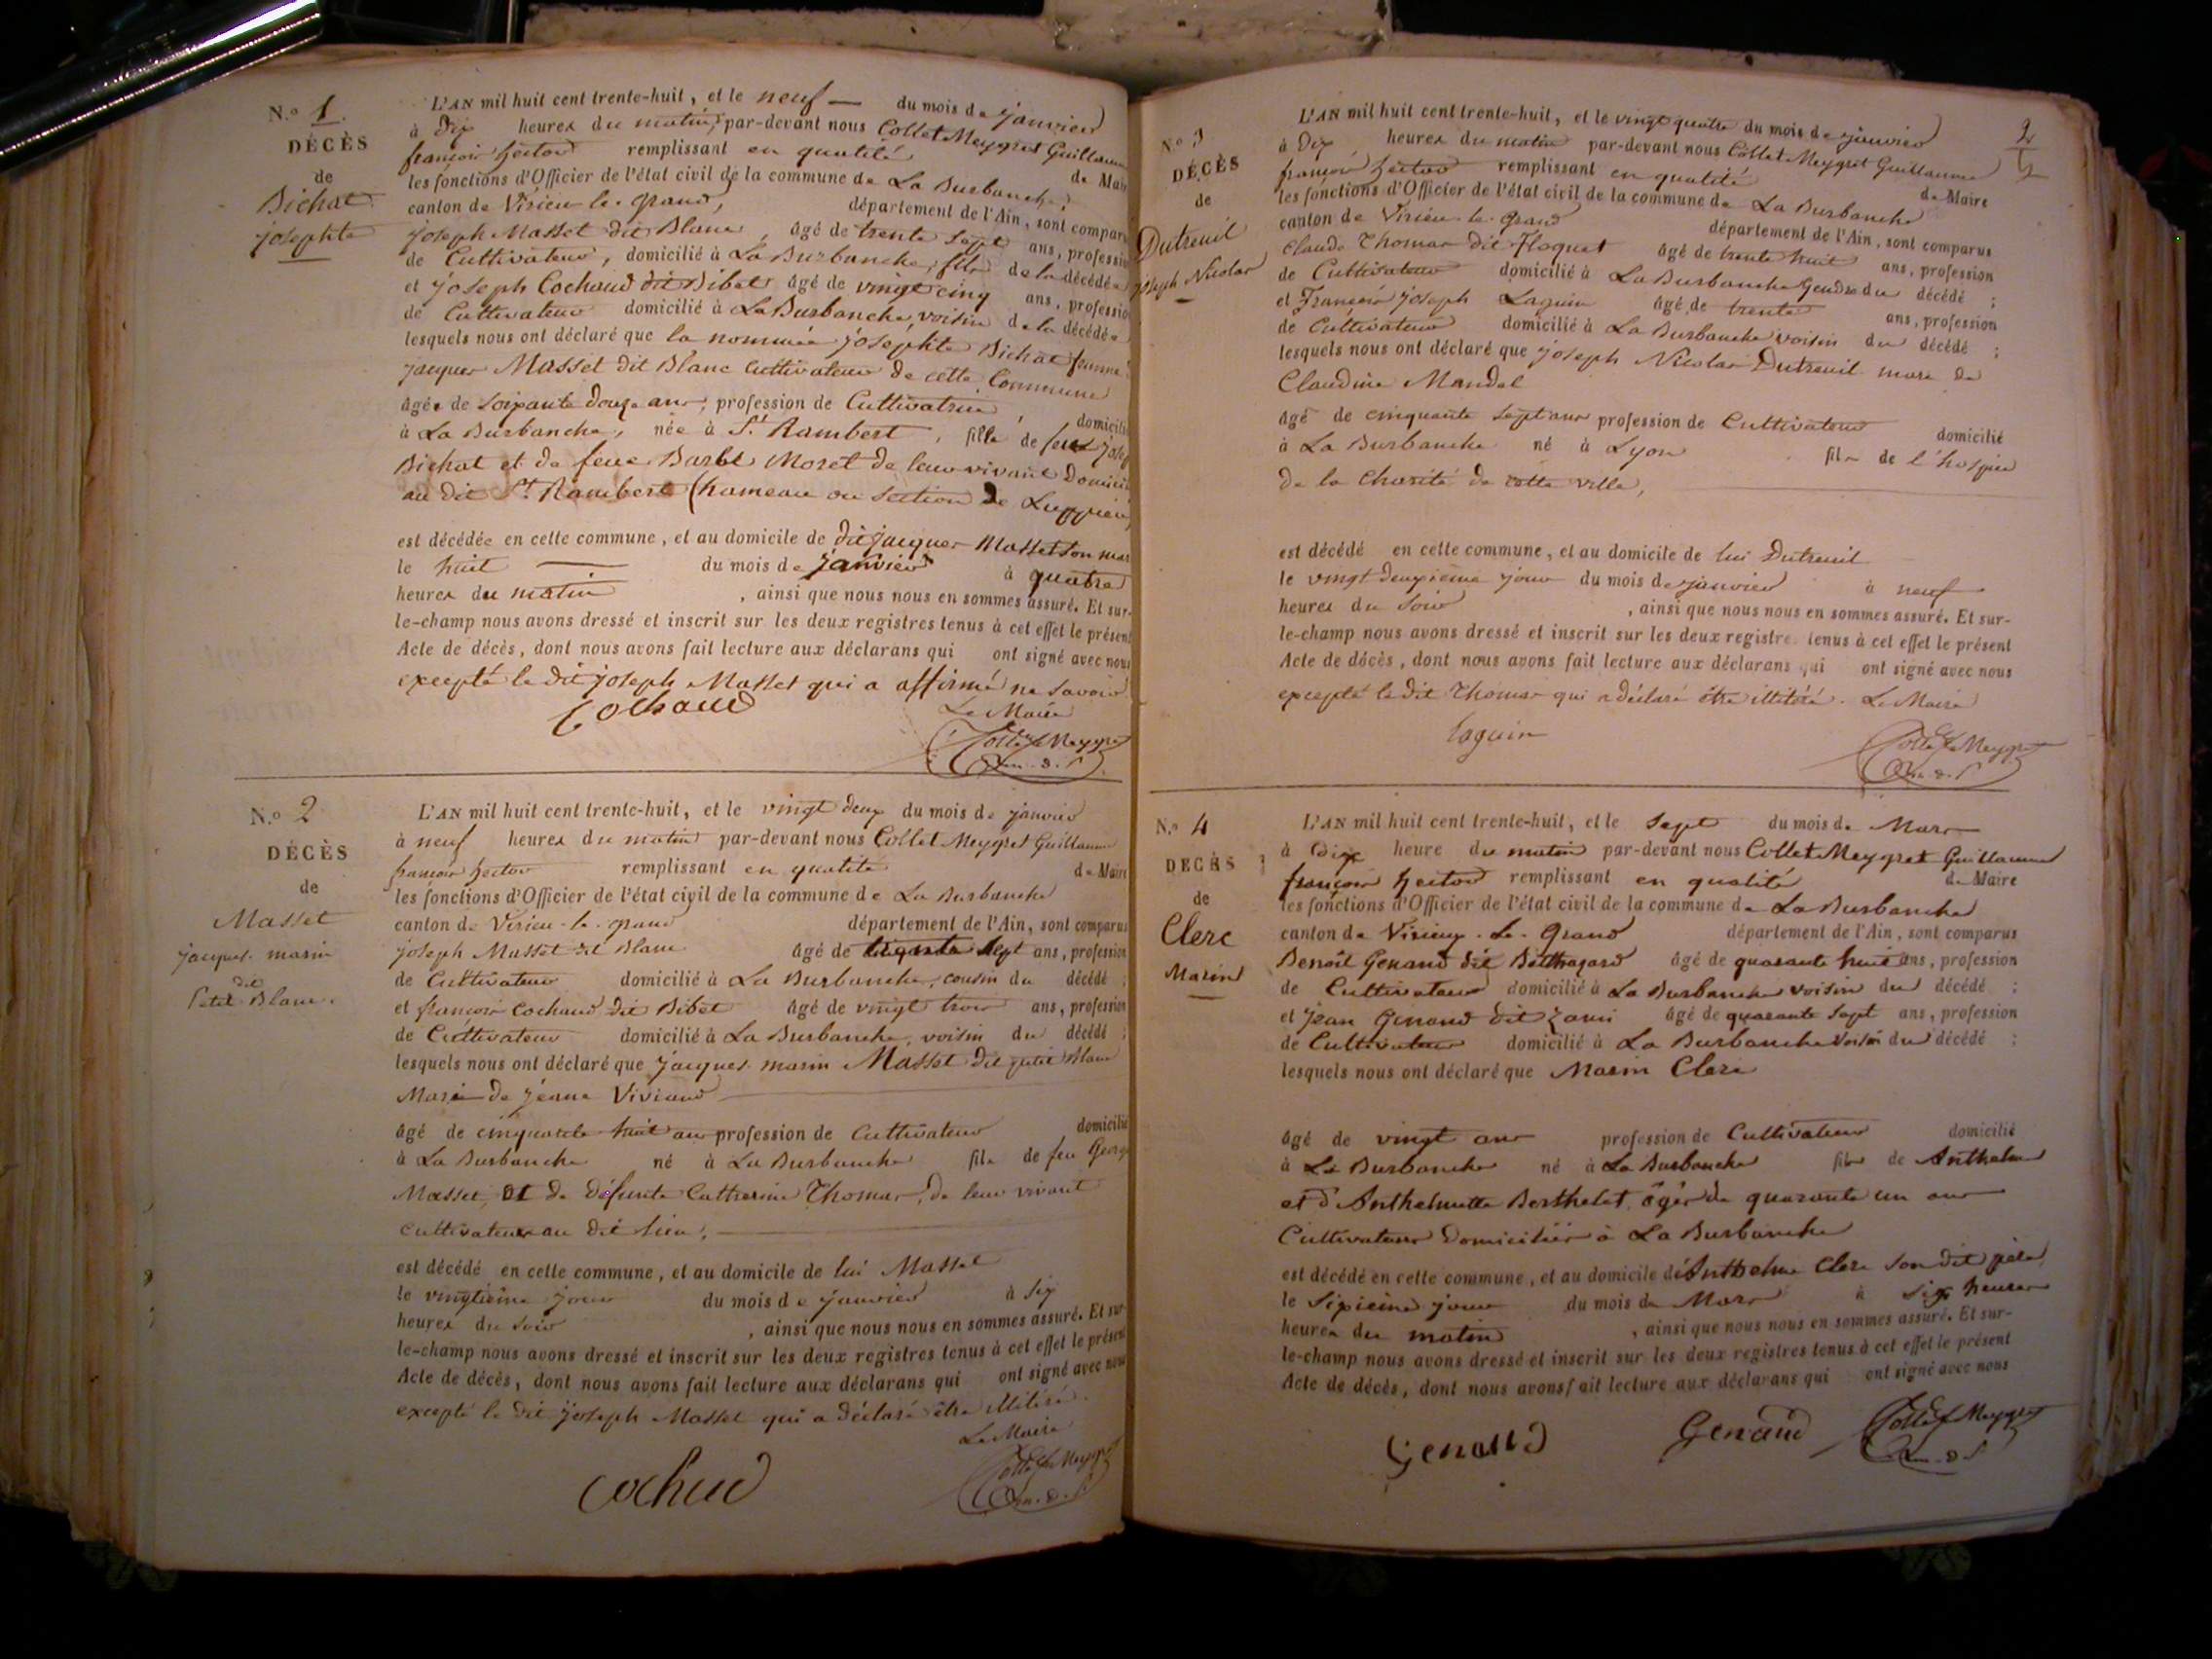 N.º 1.
DÉCÈS
de
Bichat
josephte
L'AN mil huit cent trente-huit, et le neuf du mois de janvier
à dix heures du matin, par-devant nous Collet Meygret Guillaume
françois hector remplissant en qualité de Maire
les fonctions d'Officier de l'état civil de la commune de La Burbanche,
canton de Virieu le grand, département de l'Ain, sont comparus
joseph Masset dit Blanc, âgé de trente sept ans, profession
de Cultivateur, domicilié à La Burbanche, fils de la décédée
et joseph Cochaud dit Bibet âgé de vingt cinq ans, profession
de Cultivateur domicilié à La Burbanche, voisin de la décédée
lesquels nous ont déclaré que la nommée josephte Bichat femme
jacques Masset dit Blanc cultivateur de cette Commune
âgée de soixante douze ans, profession de Cultivatrice, domicilié
à La Burbanche, née à St Rambert, fille de feu jose
Bichat et de feue Barbe Moret de leur vivant Domicil
au dit St Rambert (hameau ou section de
est décédée en cette commune, et au domicile de dit jacques Masset son mari
le huit du mois de janvier à quatre
heures du matin, ainsi que nous nous en sommes assuré. Et sur-
le-champ nous avons dressé et inscrit sur les deux registres tenus à cet effet le présent
Acte de décès, dont nous avons fait lecture aux déclarans qui ont signé avec nous
excepté le dit joseph Masset qui a affirmé ne savoir
Cochaud Le Maire
Collet Meygret
N.º 2
DÉCÈS
de
Masset
jacques marin
dit
Petit Blanc.
L'AN mil huit cent trente-huit, et le vingt deux du mois de janvier
à neuf heures du matin par-devant nous Collet Meygret Guillaume
françois hector remplissant en qualité de Maire
les fonctions d'Officier de l'état civil de la commune de La Burbanche
canton de Virieu-le-grand département de l'Ain, sont comparus
joseph Masset dit Blanc âgé de sept ans, profession
de Cultivateur domicilié à La Burbanche, cousin du décédé;
et françois Cochaud dit Bibet âgé de vingt trois ans, profession
de Cultivateur domicilié à La Burbanche, voisin du décédé;
lesquels nous ont déclaré que jacques marin Masset dit petit Blanc
Mari de jeanne Viviand
âgé de cinquante huit ans profession de Cultivateur domicilié
à La Burbanche né à La Burbanche fils de feu George
Masset, et de défunte Catherine Thomas, de leur vivant
cultivateurs au dit lieu,
est décédé en cette commune, et au domicile de lui Masset
le vingtième jour du mois de janvier à six
heures du soir, ainsi que nous nous en sommes assuré. Et sur-
le-champ nous avons dressé et inscrit sur les deux registres tenus à cet effet le présent
Acte de décès, dont nous avons fait lecture aux déclarans qui ont signé avec nous
excepté le dit joseph Masset qui a déclaré être illitéré.
Le Maire
Cochud Collet Meygret
2
N.º 3
DÉCÈS
de
Dutreuil
joseph Nicolas
L'AN mil huit cent trente-huit, et le vingt quatre du mois de janvier
à dix heures du matin par-devant nous Collet Meygret Guillaume
françois hector remplissant en qualité de Maire
les fonctions d'Officier de l'état civil de la commune de La Burbanche
canton de Virieu-le-grand département de l'Ain, sont comparus
Claude Thomas dit Floquet âgé de trente huit ans, profession
de Cultivateur domicilié à La Burbanche Gendre du décédé;
et François joseph Laguin âgé de trente ans, profession
de Cultivateur domicilié à La Burbanche voisin du décédé;
lesquels nous ont déclaré que joseph Nicolas Dutreuil mari de
Claudine Mandel
âgé de cinquante sept ans profession de Cultivateur domicilié
à La Burbanche né à Lyon fils de l'hospice
de la Charité de cette ville,
est décédé en cette commune, et au domicile de lui Dutreuil
le vingt deuxième jour du mois de janvier à neuf
heures du soir, ainsi que nous nous en sommes assuré. Et sur-
le-champ nous avons dressé et inscrit sur les deux registres tenus à cet effet le présent
Acte de décès, dont nous avons fait lecture aux déclarans qui ont signé avec nous
excepté le dit Thomas qui a déclaré être illitéré. Le Maire
laguin Collet Meygret
N.º 4
DÉCÈS
de
Clerc
Marin
L'AN mil huit cent trente-huit, et le sept du mois de Mars
à dix heure du matin par-devant nous Collet Meygret Guillaume
françois hector remplissant en qualité de Maire
les fonctions d'Officier de l'état civil de la commune de La Burbanche
canton de Virieux-le-Grand département de l'Ain, sont comparus
Benoît Genand dit Balthazard âgé de quarante huit ans, profession
de Cultivateur domicilié à La Burbanche voisin du décédé;
et jean Genand dit âgé de quarante sept ans, profession
de Cultivateur domicilié à La Burbanche voisin du décédé;
lesquels nous ont déclaré que Marin Clerc
âgé de vingt ans profession de Cultivateur domicilié
à La Burbanche né à La Burbanche fils de Anthelme
et d'Anthelmette Berthelet, âgés de quarante un ans
Cultivateurs Domiciliés à La Burbanche
est décédé en cette commune, et au domicile d'Anthelme Clerc son dit père
le sixième jour du mois de Mars à six heures
heures du matin, ainsi que nous nous en sommes assuré. Et sur-
le-champ nous avons dressé et inscrit sur les deux registres tenus à cet effet le présent
Acte de décès, dont nous avons fait lecture aux déclarans qui ont signé avec nous
Genand Genand Collet Meygret